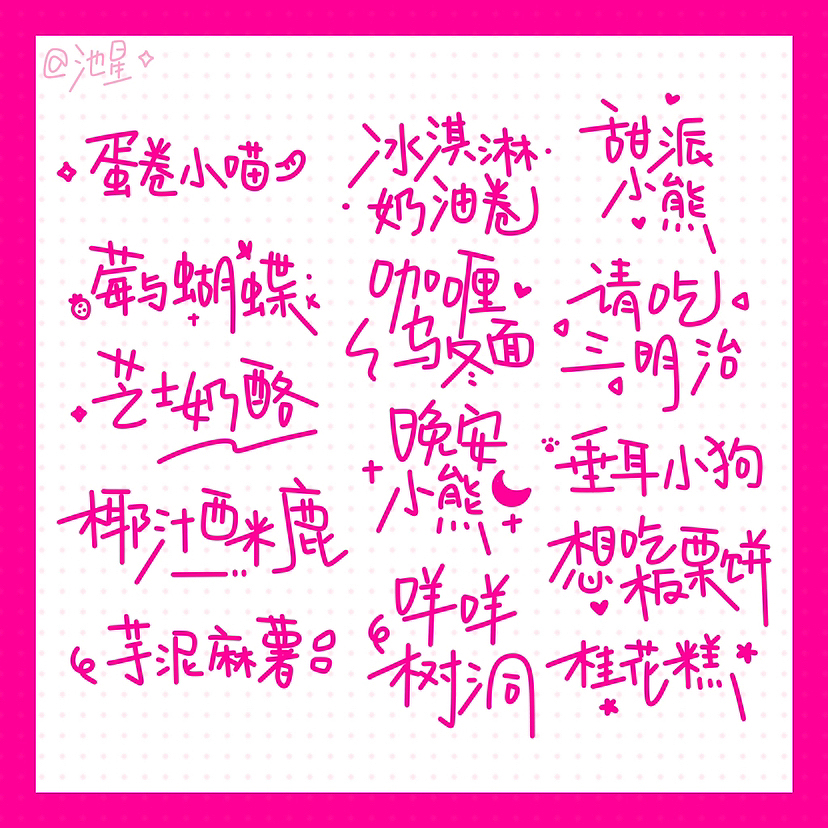 @池星
蛋卷小喵
莓与蝴蝶
芝士奶酪
椰汁西米鹿
芋泥麻薯
冰淇淋
奶油卷
咖喱
乌冬面
晚安
小熊
咩咩
树洞
甜派
小熊
请吃
三明治
垂耳小狗
想吃
板栗饼
桂花糕